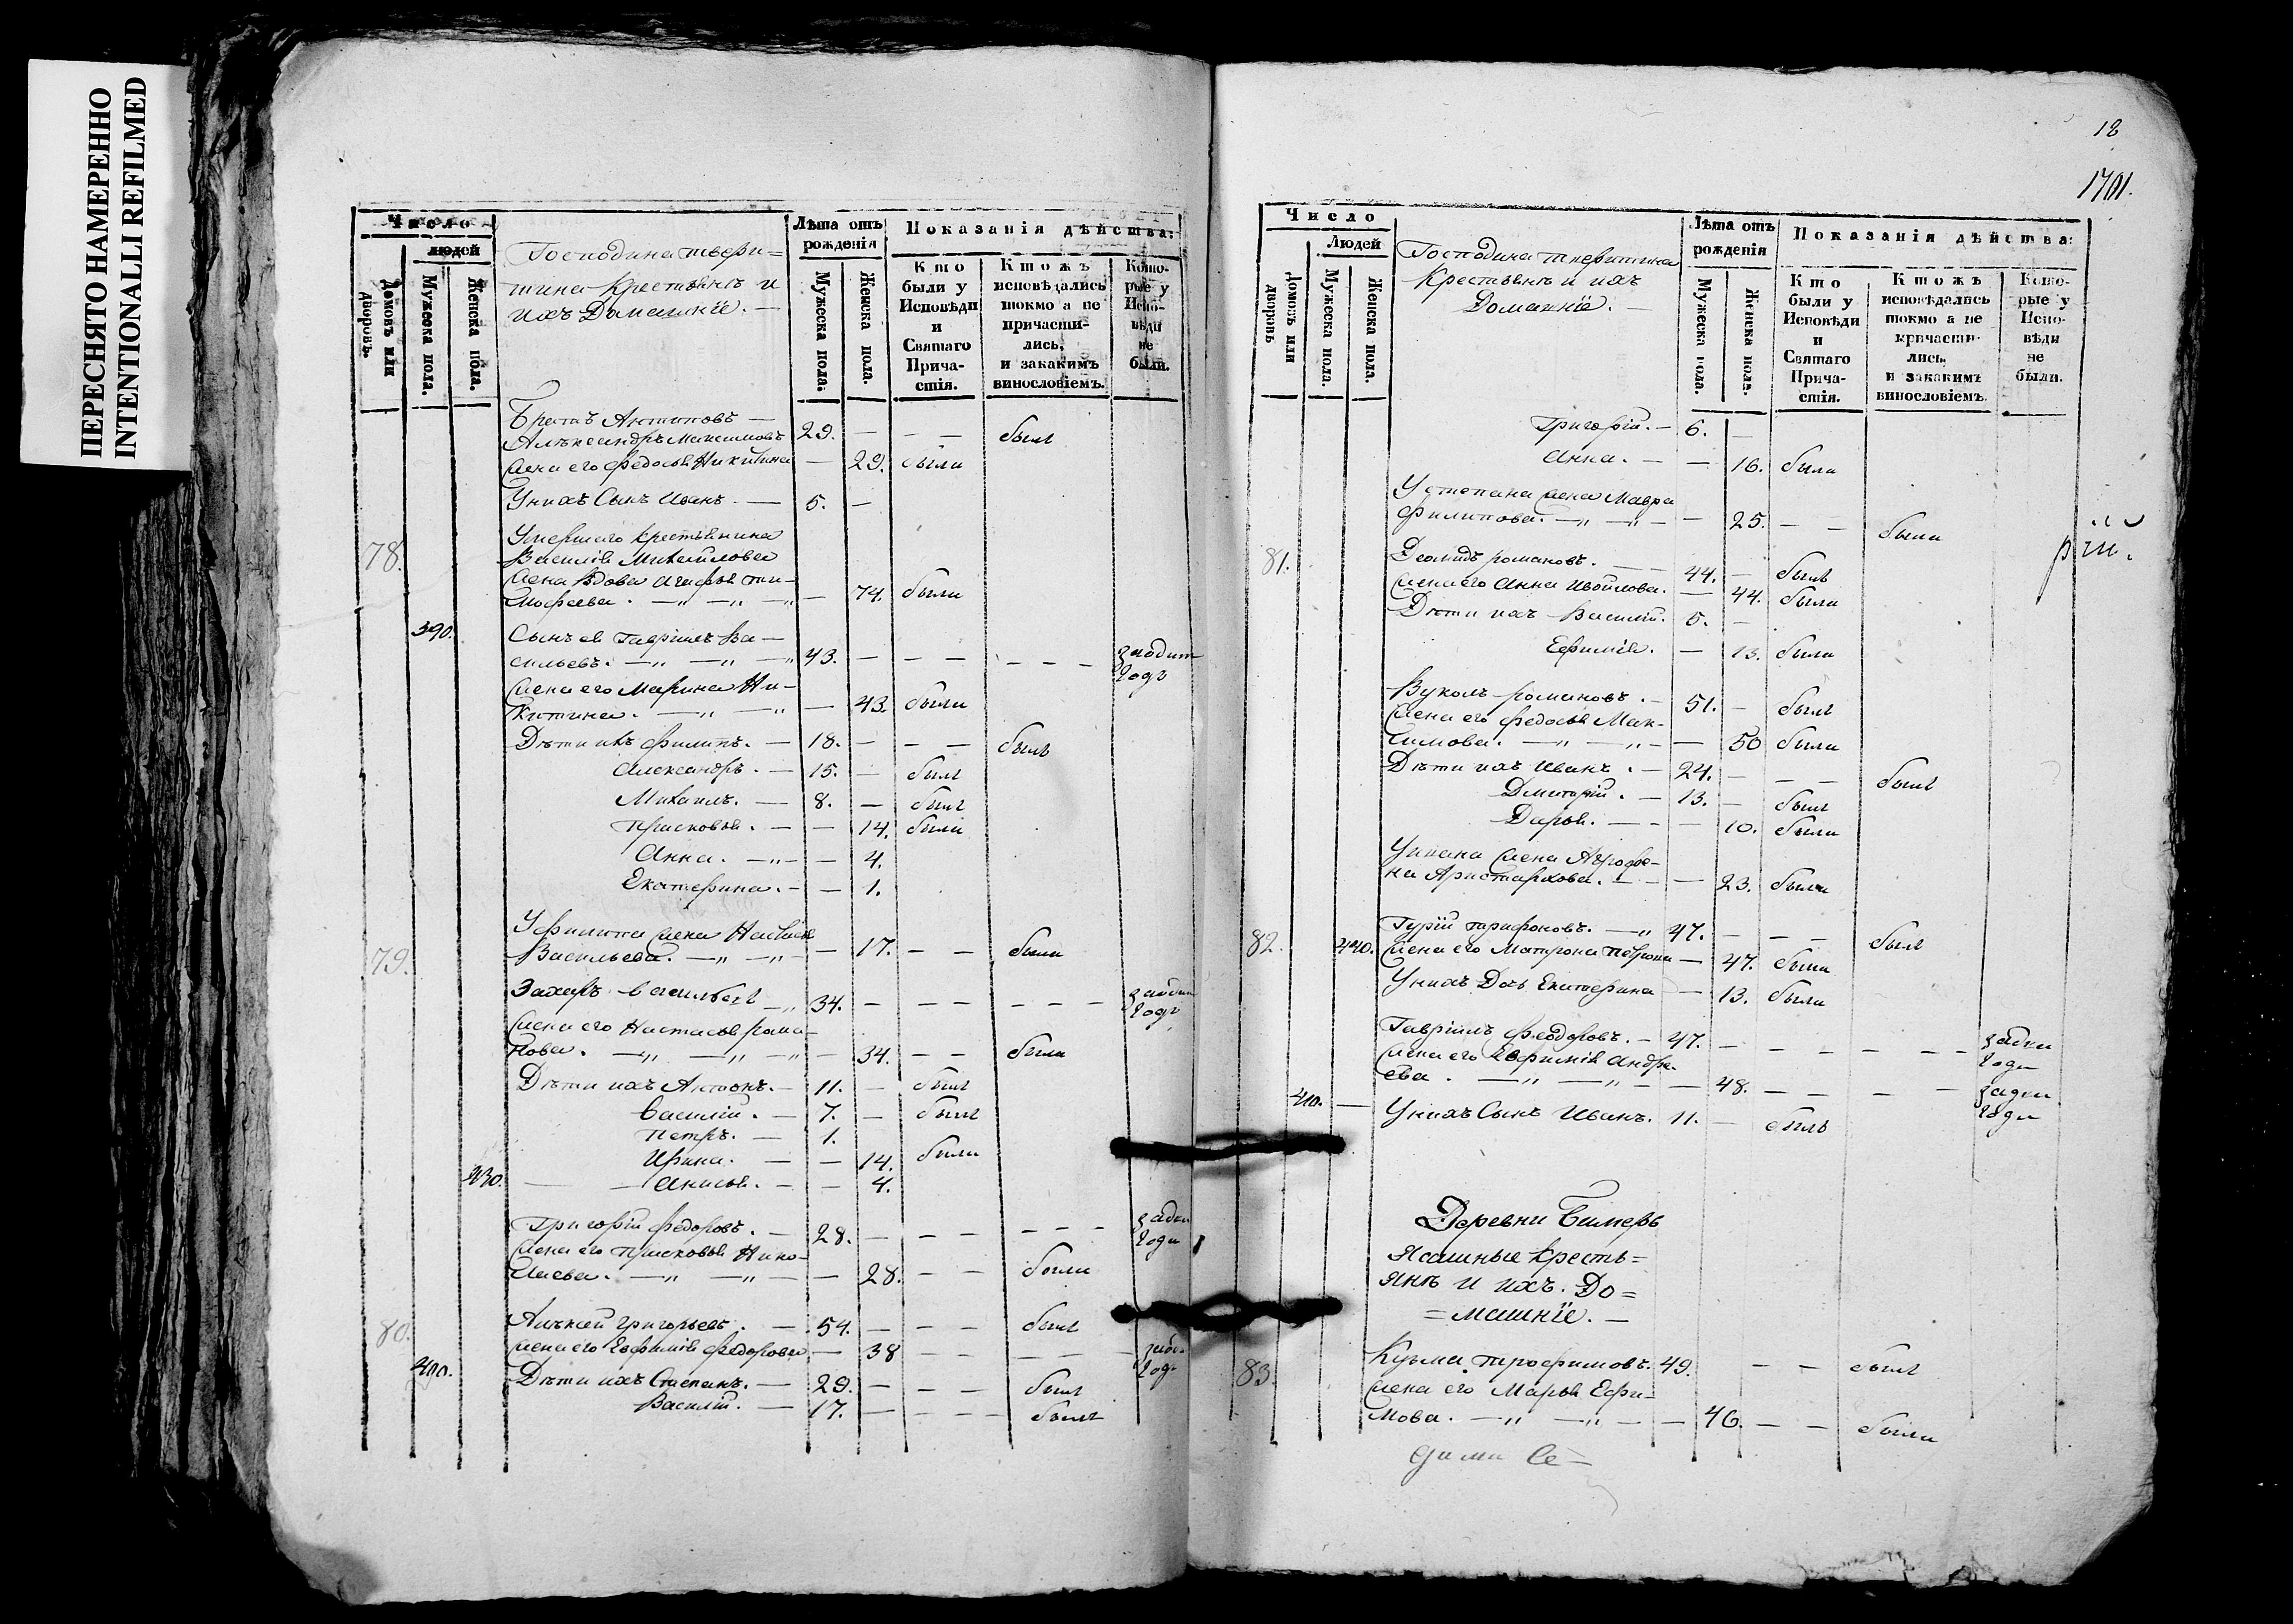 ПЕРЕСНЯТО НАМЕРЕННО
INTENTIONALLI REFILMED
Число
людей
Домовъ или дворовъ.
Мужеска пола.
Женска пола.
Господина твери=
тина крестьянъ и
ихъ Домашнїе. —
Лѣта отъ рождѣнія
Мужеска пола.
Женска пола.
Показанія дѣйства:
Кто были у Исповѣди и Святаго Прича-стія.
Ктожъ исповѣдались токмо а не причасти-лись, и закакимъ винословіемъ.
Кото-рые у Испо-вѣди не были.
Братъ Антиповъ —
Алѣксандръ Максимовъ 29. — — — былъ
Жена его Федосья Никитина — 29. была
Унихъ Сынъ Иванъ. — 5. —
78. Умершаго крестьянина
Василія Михайлова
Жена вдова Агафья ти-
мофеева. — 74. была
390. Сынъ ея Гавріилъ Ва-
сильевъ. — 43. — — — — — —
годъ
Жена его Марина Ни-
китина. — 43. была
Дѣти ихъ Филипъ. — 18. — — — былъ
Александръ. — 15. — былъ
Михаилъ. — 8. — былъ
Прасковья. — — 14. была
Анна. — — 4.
Екатерина. — — 1.
79. Уфилипа Жена
Васильева. — 17. — — была
Захаръ Васильевъ — 34. — — — — — —
годъ
Жена его Настасья рома-
нова. — 34. — — была
Дѣти ихъ Антонъ. — 11. — былъ
Василій. — 7. — былъ
Петръ. — 1.
Ирина. — — 14. была
430. Анисья. — — 4.
Григорій Федоровъ. — 28. — — — — — —
годъ
Жена его Прасковья Нико-
лаева. — 28. — — была
80. Алѣксѣй Григорьевъ. — 54. — — — былъ
Жена его Евфимія Федорова — 38 — — — — —
400. Дѣти ихъ Степанъ. — 29. — — — былъ
Василій. — 17. — — — — былъ
18
1701.
Число
Людей
Домовъ или дворовъ
Мужеска пола.
Женска пола.
Господина тверитина
Крестьянъ и ихъ
Домашніе. —
Лѣта отъ рожденія
Мужеска пола.
Женска пола.
Показанія дѣйства:
Кто были у Исповѣди и Святаго Прича-стія.
Ктожъ исповѣдались токмо а не причасти-лись, и закакимъ винословіемъ.
Кото-рые у Испо-вѣди не были.
Григорій. — 6. —
Анна. — — 16. была
Устепана Жена Мавра
Филипова. — 25. — — была
81. Романовъ. — 44. — былъ
Жена его Анна — 44. была
Дѣти ихъ Василій. 5. —
Ефимія. — 13. была
Вуколъ Романовъ. — 51. — былъ
Жена его Федосья Мак-
симова. — 50 была
Дѣти ихъ Иванъ. — 24. — — — былъ
Дмитрій. — 13. — былъ
Дарья. — — 10. была
Уивана Жена Аграфе-
на Аристархова. — 23. была
82. Гурій Трифоновъ. — 47. — — — былъ
440. Жена его Матрона Петрова — 47. была
Унихъ Дочь Екатерина — 13. была
Гавріилъ Феодоровъ. — 47. — — — — — —
Жена его Евфимія Андре-
ева. — 48. — — — —
410. — Унихъ Сынъ Иванъ. 11. — былъ
Деревни Бимерь
Ясашные кресть=
янъ и ихъ. До=
=машніе. —
83. Кузма Трофимовъ. 49. — — былъ
Жена его Марья Ефи-
мова. — 46. — — была
рій.